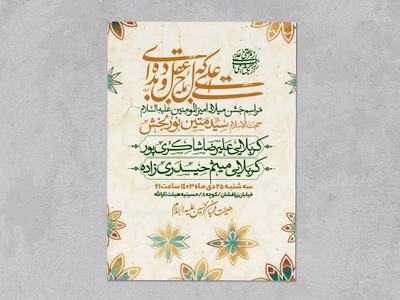 علی ای که جمله عقل و دیده‌ای
مراسم جشن میلاد امیرالمومنین علیه السلام
حجت الاسلام سید متین نوربخش
کربلایی علیرضا شاکری پور
کربلایی میثم حیدری زاده
سه شنبه ۲۵ دی ماه ۱۴۰۳ ساعت ۲۱
خیابان زرافشان / کوچه ۸ / حسینیه هیئت ثارالله